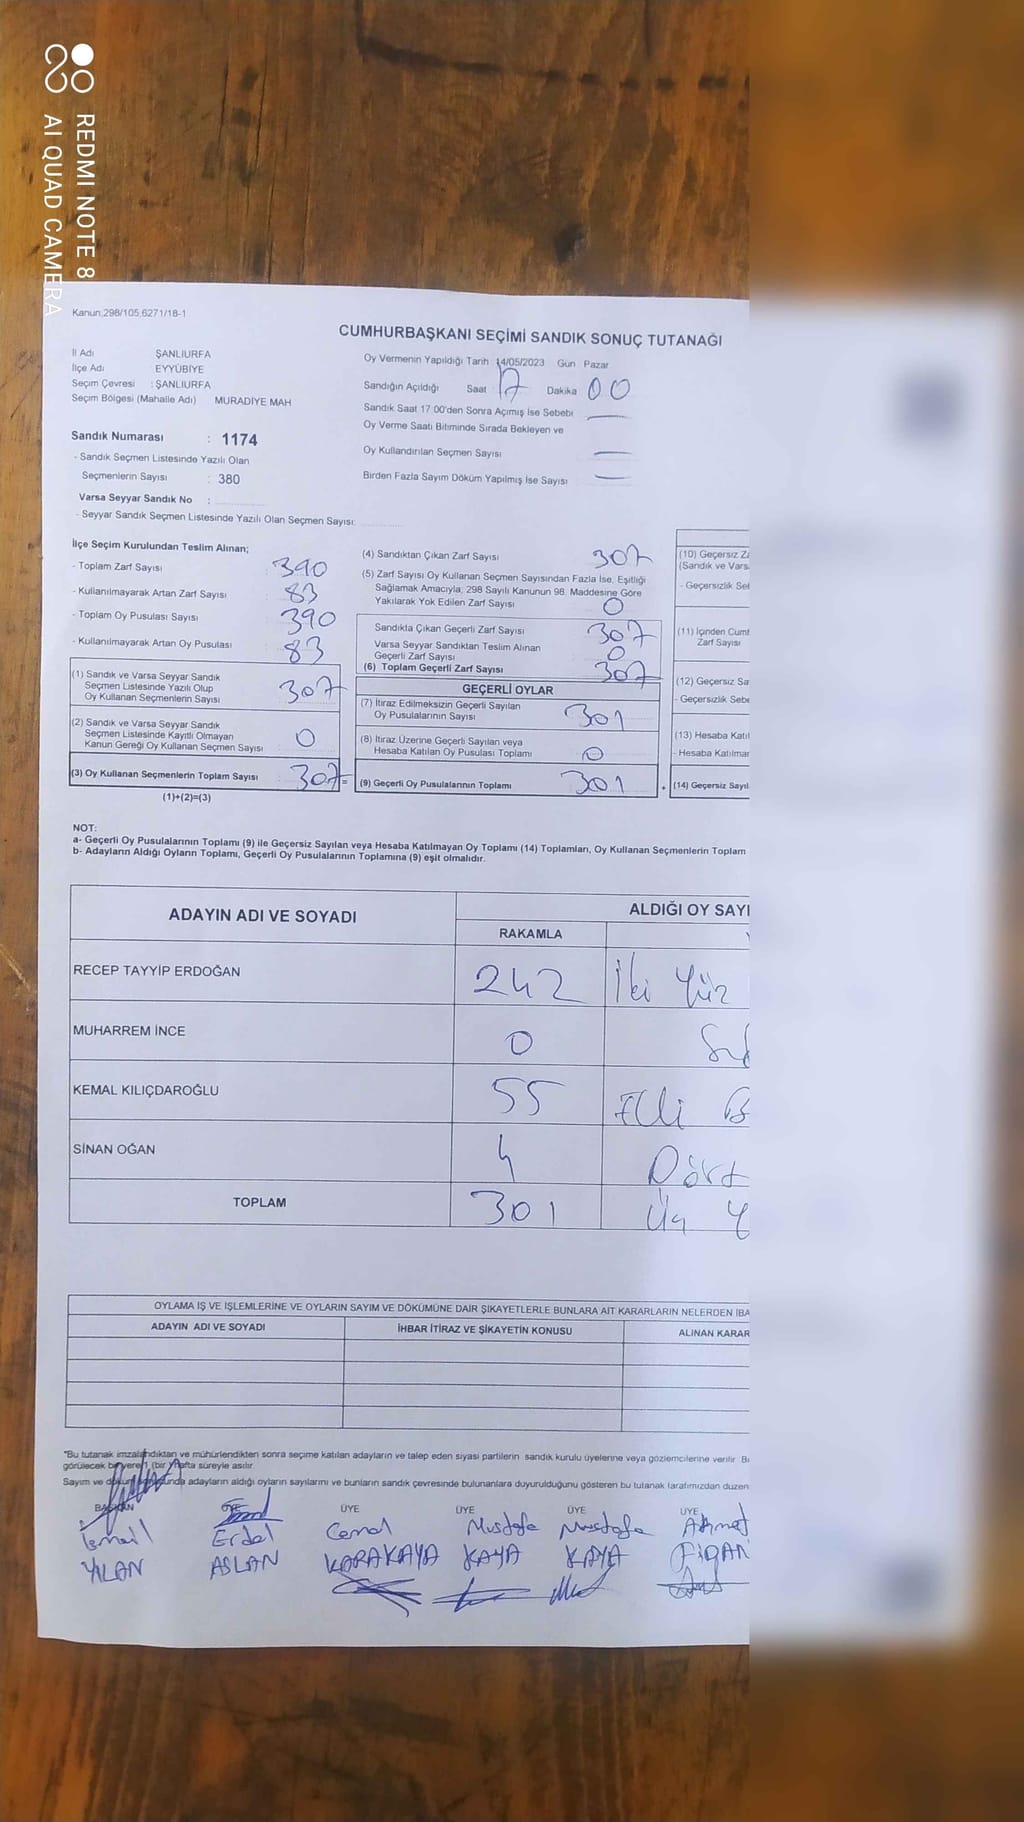 REDMI NOTE 8
AI QUAD CAMERA
Kanun,298/105,6271/18-1
CUMHURBAŞKANI SEÇİMİ SANDIK SONUÇ TUTANAĞI
İl Adı ŞANLIURFA
İlçe Adı EYYÜBİYE
Seçim Çevresi : ŞANLIURFA
Seçim Bölgesi (Mahalle Adı) MURADİYE MAH
Sandık Numarası : 1174
- Sandık Seçmen Listesinde Yazılı Olan
Seçmenlerin Sayısı : 380
Varsa Seyyar Sandık No :
- Seyyar Sandık Seçmen Listesinde Yazılı Olan Seçmen Sayısı:
Oy Vermenin Yapıldığı Tarih 14/05/2023 Gün Pazar
Sandığın Açıldığı Saat 17 Dakika 00
Sandık Saat 17:00'den Sonra Açımış İse Sebebi
Oy Verme Saati Bitiminde Sırada Bekleyen ve
Oy Kullandırılan Seçmen Sayısı
Birden Fazla Sayım Döküm Yapılmış İse Sayısı
İlçe Seçim Kurulundan Teslim Alınan;
- Toplam Zarf Sayısı : 390
- Kullanılmayarak Artan Zarf Sayısı : 83
- Toplam Oy Pusulası Sayısı : 390
- Kullanılmayarak Artan Oy Pusulası : 83
(1) Sandık ve Varsa Seyyar Sandık
Seçmen Listesinde Yazılı Olup
Oy Kullanan Seçmenlerin Sayısı 307
(2) Sandık ve Varsa Seyyar Sandık
Seçmen Listesinde Kayıtlı Olmayan
Kanun Gereği Oy Kullanan Seçmen Sayısı 0
(3) Oy Kullanan Seçmenlerin Toplam Sayısı 307 =
(1)+(2)=(3)
(4) Sandıktan Çıkan Zarf Sayısı 307
(5) Zarf Sayısı Oy Kullanan Seçmen Sayısından Fazla İse, Eşitliği
Sağlamak Amacıyla; 298 Sayılı Kanunun 98. Maddesine Göre
Yakılarak Yok Edilen Zarf Sayısı 0
Sandıkta Çıkan Geçerli Zarf Sayısı 307
Varsa Seyyar Sandıktan Teslim Alınan
Geçerli Zarf Sayısı 0
(6) Toplam Geçerli Zarf Sayısı 307
GEÇERLİ OYLAR
(7) İtiraz Edilmeksizin Geçerli Sayılan
Oy Pusulalarının Sayısı 301
(8) İtiraz Üzerine Geçerli Sayılan veya
Hesaba Katılan Oy Pusulası Toplamı 0
(9) Geçerli Oy Pusulalarının Toplamı 301 +
(10) Geçersiz Za
(Sandık ve Vars
- Geçersizlik Seb
(11) İçinden Cumh
Zarf Sayısı
(12) Geçersiz Sa
- Geçersizlik Sebe
(13) Hesaba Katıl
- Hesaba Katılmar
(14) Geçersiz Sayıl
NOT:
a- Geçerli Oy Pusulalarının Toplamı (9) ile Geçersiz Sayılan veya Hesaba Katılmayan Oy Toplamı (14) Toplamları, Oy Kullanan Seçmenlerin Toplam
b- Adayların Aldığı Oyların Toplamı, Geçerli Oy Pusulalarının Toplamına (9) eşit olmalıdır.
ADAYIN ADI VE SOYADI
ALDIĞI OY SAYI
RAKAMLA
RECEP TAYYİP ERDOĞAN 242 İki Yüz
MUHARREM İNCE 0 Sıf
KEMAL KILIÇDAROĞLU 55 Elli B
SİNAN OĞAN 4 Dört
TOPLAM 301 Üç Y
OYLAMA İŞ VE İŞLEMLERİNE VE OYLARIN SAYIM VE DÖKÜMÜNE DAİR ŞİKAYETLERLE BUNLARA AİT KARARLARIN NELERDEN İBA
ADAYIN ADI VE SOYADI İHBAR İTİRAZ VE ŞİKAYETİN KONUSU ALINAN KARAR
*Bu tutanak imzalandıktan ve mühürlendikten sonra seçime katılan adayların ve talep eden siyasi partilerin sandık kurulu üyelerine veya gözlemcilerine verilir. Bi
görülecek bir yere 1 (bir) hafta süreyle asılır.
Sayım ve döküm sonunda adayların aldığı oyların sayılarını ve bunların sandık çevresinde bulunanlara duyurulduğunu gösteren bu tutanak tarafımızdan düzen
BAŞKAN ÜYE ÜYE ÜYE ÜYE ÜYE
İsmail Erdal Cemal Mustafa Mustafa Ahmet
YILAN ASLAN KARAKAYA KAYA KAYA FİGAN